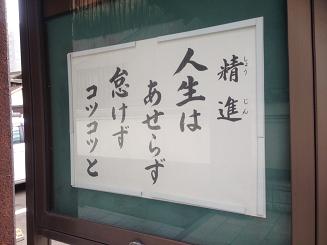 精進
しょう
じん
人生は
あせらず
怠けず
コツコツと